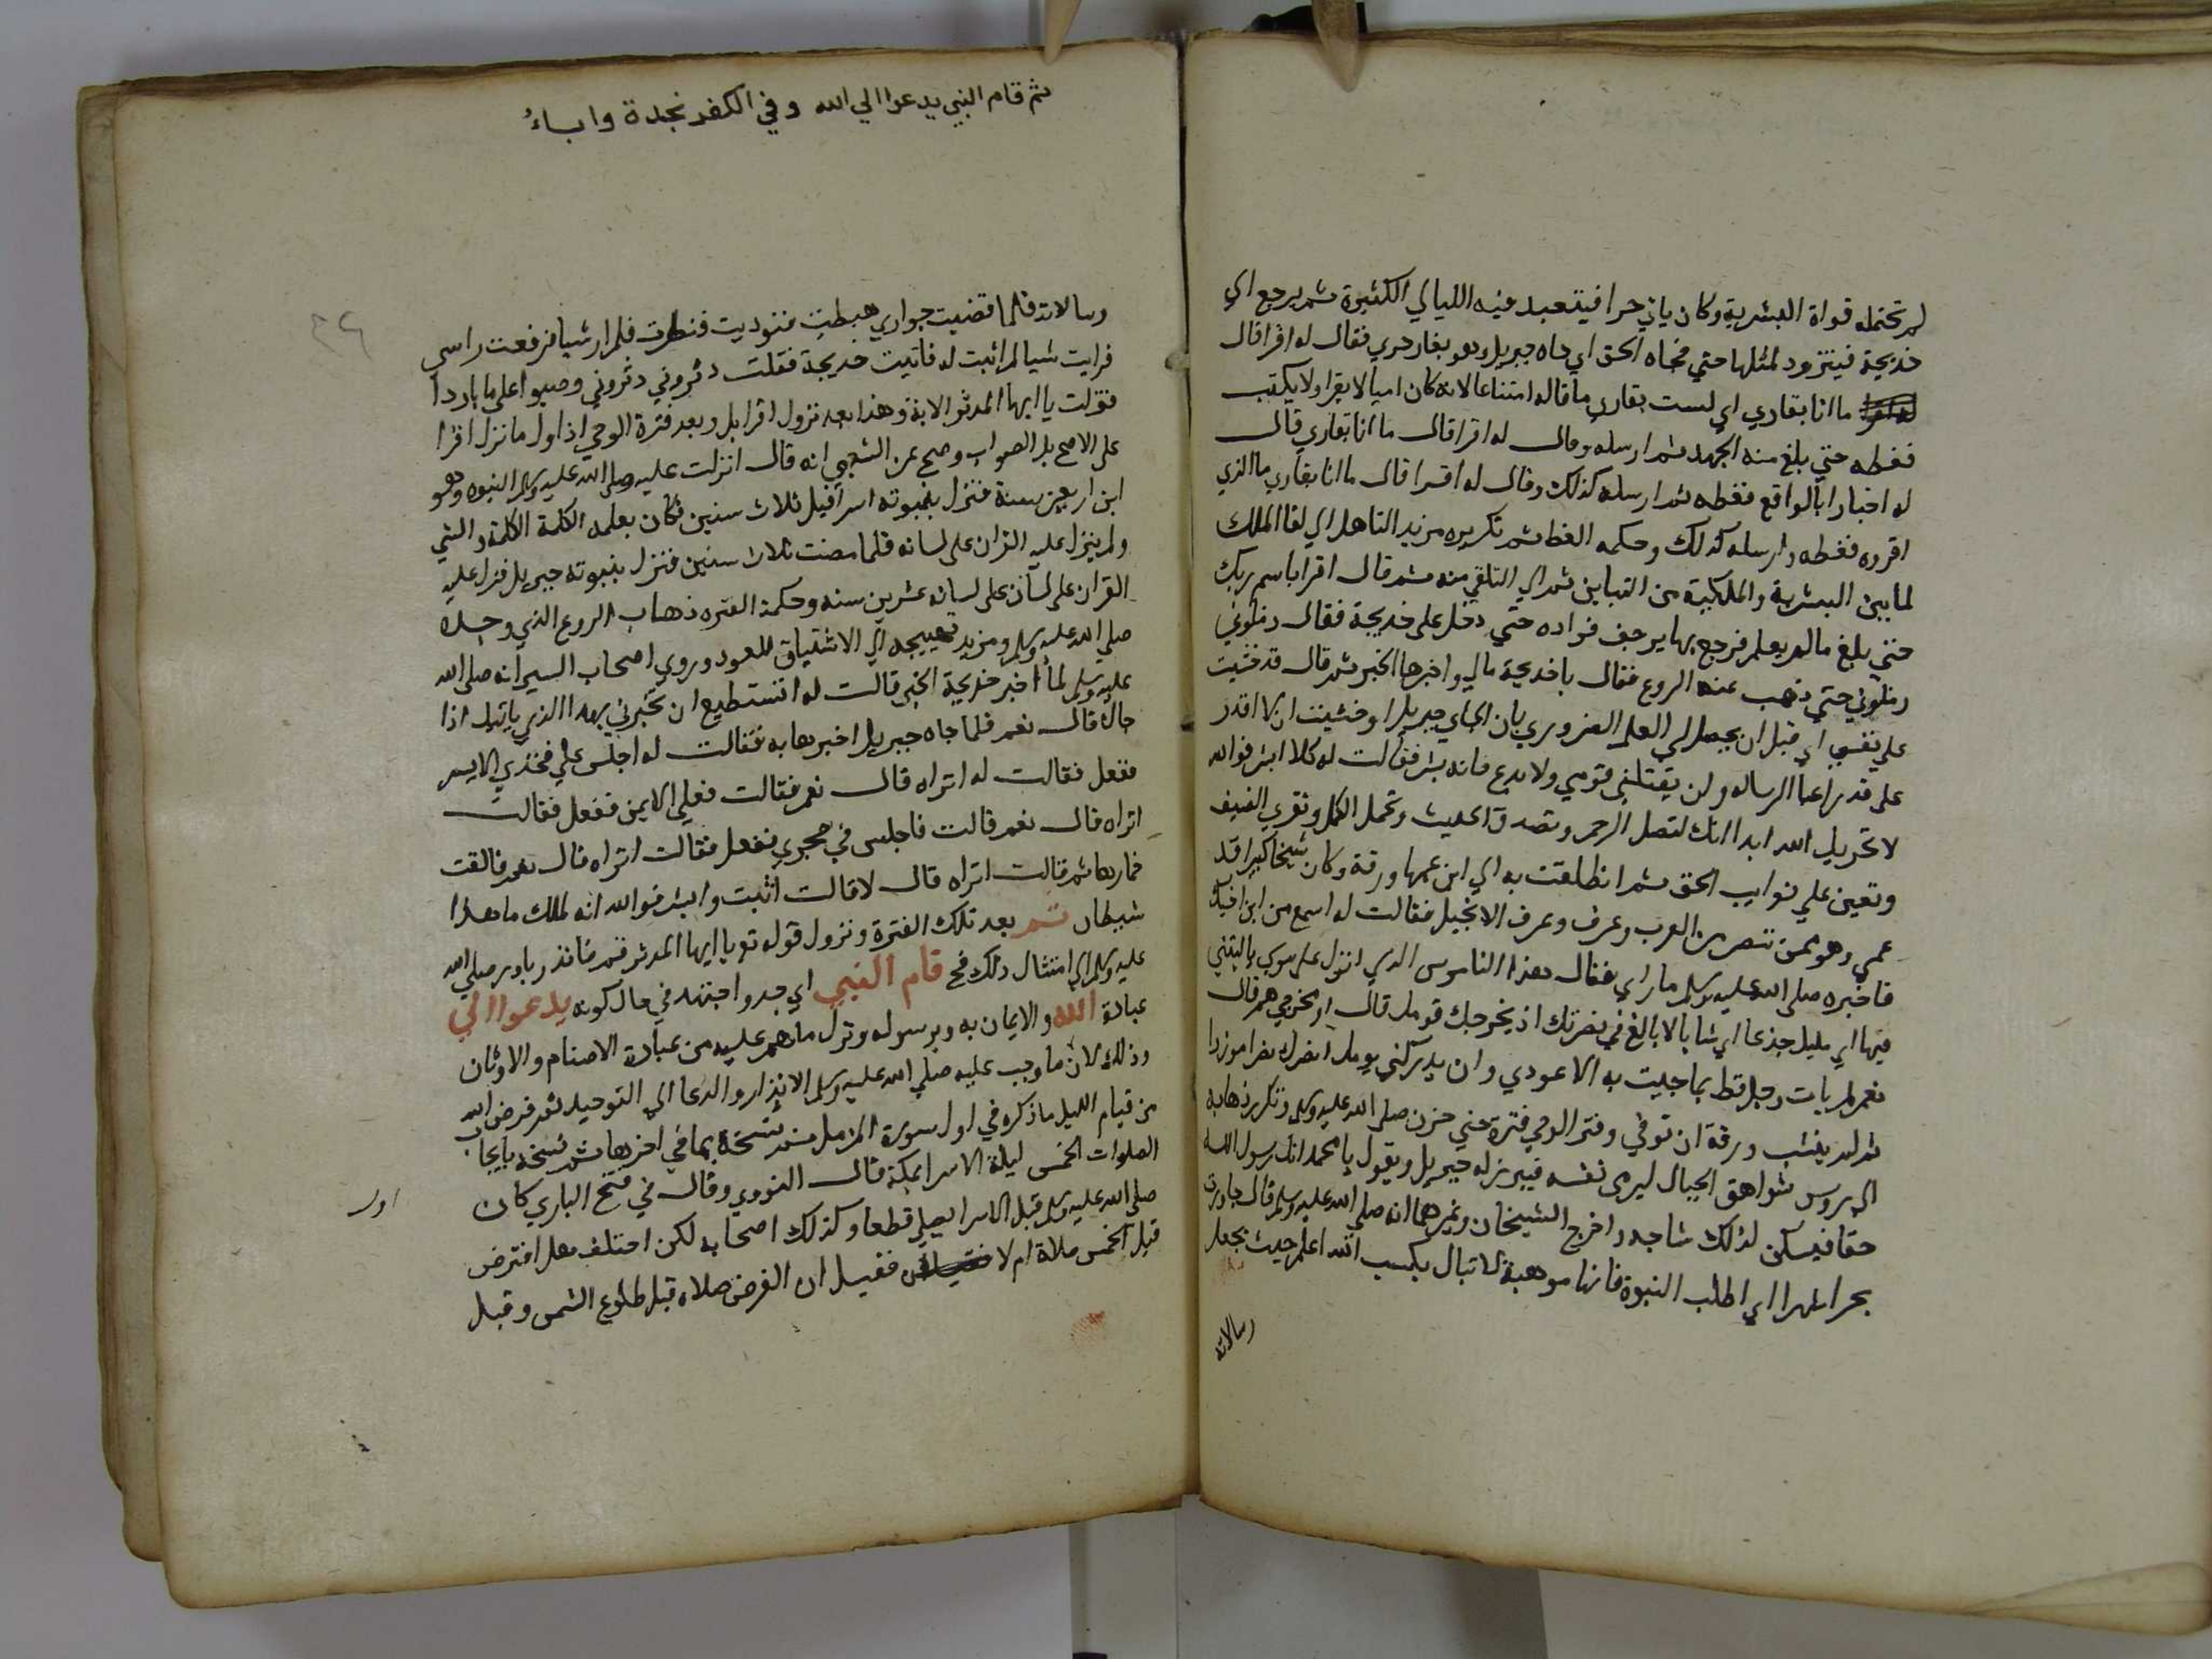 لم تحتمله قواة البشرية وكان ياتي حرا فيتعبد فيه الليالي الكثيرة ثم يرجع الي
خديجة فيتزود لمثلها حتي فجاه الحق اي جاه جبريل وهو بغار حري فقال له اقرا قال
ما انا بقاري اي لست بقاري ما قاله امتناعا لانه كان اميا لا يقرا ولا يكتب
فغطه حتي بلغ منه الجهد ثم ارسله وقال له اقرا قال ما انا بقاري قال
له اخبارا بالواقع فغطه ثم ارسله كذلك وقال له اقرا قال ما انا بقاري ما الذي
اقروه فغطه وارسله كذلك وحكمه الغط ثم تكريره مزيد التاهل الي لقا الملك
لما بين البشرية والملكية من التباين ثم الي التلقي منه ثم قال اقرا باسم ربك
حتي بلغ ما لم يعلم فرجع بها يرجف فواده حتي دخل علي خديجة فقال زملوني
زملوني حتي ذهب عنه الروع فقال يا خديجة مالي واخبرها الخبر ثم قال قد خشيت
علي نفسي اي قبل ان يحصل لي العلم الضروري بان الجاي جبريل او خشيت ان لا اقدر
علي قدر اعبا الرساله ولن يقتلني قومي ولا بدع فانه بشر فقالت له كلا ابشر فوالله
لا يخزيك الله ابدا انك لتصل الرحم وتصدق الحديث وتحمل الكل وتقري الضيف
وتعين علي نوايب الحق ثم انطلقت به الي ابن عمها ورقة وكان شيخا كبيرا قد
عمي وهو ممن تنصر من العرب وعرف وعرف الانجيل فقالت له اسمع من ابن اخيك
فاخبره صلي الله عليه وسلم ما راي فقال هذا الناموس الذي انزل علي موسي ياليتني
فيها اي جذعا اي شابا لا بالغ في نصرتك اذ يخرجك قومك قال او مخرجي هم قال
نعم لم يات رجل قط بما جيت به الا عودي وان يدركني يومك انصرك نصرا موزرا
ثم لم ينشب ورقة ان توفي وفتر الوحي فترة حتي حزن صلي الله عليه وسلم وتكرر ذهابه
الي روس شواهق الجبال ليرمي نفسه فيبرز له جبريل ويقول يا محمد انك رسول الله
حقا فيسكن لذلك شاجه واخرج الشيخان وغيرهما انه صلي الله عليه وسلم قال جاورت
بحرا شهرا اي اطلب النبوة فانها موهبة لا تنال بكسب الله اعلم حيث يجعل
رسالاته
ثم قام النبي يدعوا الي الله وفي الكفر نجدة واباءُ
رسالاته فلما قضيت جواري هبطت فنوديت فنظرت فلم ار شيا فرفعت راسي
فرايت شيا لم اثبت له فاتيت خديجة فقلت دثروني دثروني وصبوا علي ما باردا
فنزلت يا ايها المدثر الاية وهذا بعد نزول اقرا بل وبعد فترة الوحي اذ اول ما نزل اقرا
علي الاصح بل الصواب وصح عن الشعبي انه قال انزلت عليه صلي الله عليه وسلم النبوه وهو
ابن اربعين سنة فنزل بنبوته اسرافيل ثلاث سنين فكان يعلمه الكلمة الكلمة والشي
ولم ينزل عليه القران علي لسانه فلما مضت ثلاث سنين فنزل بنبوته جبريل فنزل عليه
القران علي لسان علي لسانه عشرين سنه وحكمة الفتره ذهاب الروع الذي وجده
صلي الله عليه وسلم ومزيد تهييجه الي الاشتياق للعود وروي اصحاب السير انه صلي الله
عليه وسلم لما اخبر خديجة الخبر قالت له اتستطيع ان تخبرني بهذا الذي ياتيك اذا
جاك قال نعم فلما جاه جبريل اخبرها به فقالت له اجلس علي فخذي الايسر
ففعل فقالت له اتراه قال نعم فقالت فعلي الايمن ففعل فقالت
اتراه قال نعم قالت فاجلس في حجري ففعل فقالت اتراه قال نعم فالقت
خمارها ثم قالت اتراه قال لا قالت اثبت وابشر فوالله انه لملك ما هذا
شيطان ثم بعد تلك الفترة ونزول قوله تع يا ايها المدثر قم فانذر بادر صلي الله
عليه وسلم الي امتثال ذلك فح قام النبي اي جد واجتهد في حال كونه يدعوا الي
عبادة الله والايمان به وبرسوله وترك ما هم عليه من عبادة الاصنام والاوثان
وذلك لان ما وجب عليه صلي الله عليه وسلم الانذار والدعا الي التوحيد ثم فرض الله
من قيام الليل ما ذكره في اول سورة المزمل ثم نسخه بما في اخرها ثم نسخه بايجاب
الصلوات الخمس ليلة الاسرا بمكة قال النووي وقال في فتح الباري كان
صلي الله عليه وسلم قبل الاسرا يصلي قطعا وكذلك اصحابه لكن اختلف هل افترض
قبل الخمس صلاة ام لا فقيل ان الفرض صلاه قبل طلوع الشمس وقبل